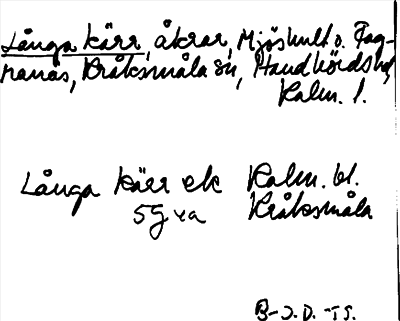 Långa kärr, åkrar, Mjöshult o. Fag-
ranäs, Kråksmåla sn, Handbörds hd,
Kalm. l.
Långa kärr ek Kalm. bl.
5G4a Kråksmåla
B-J.D.-T S.